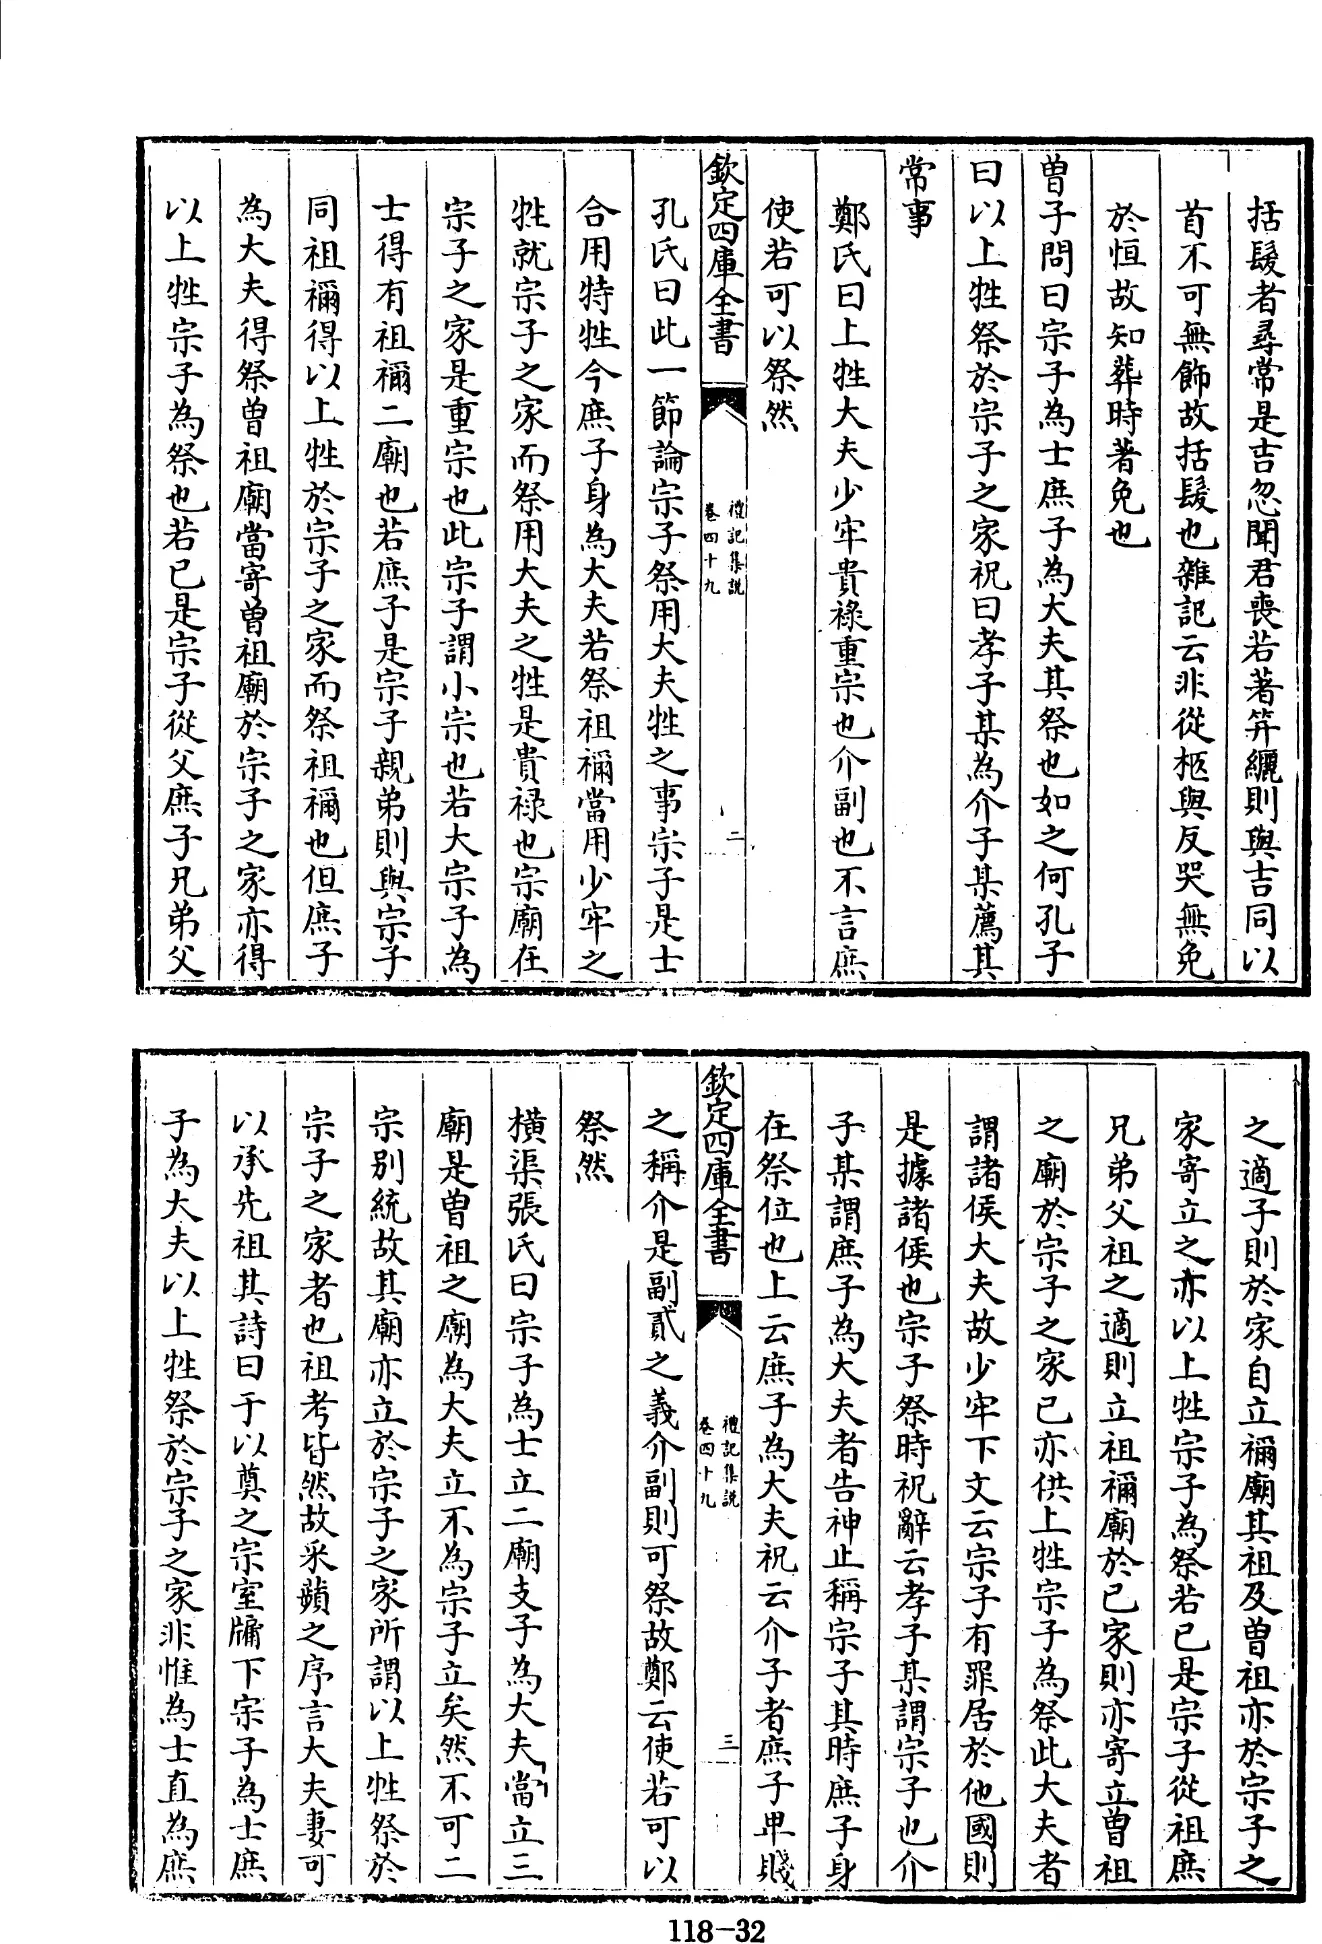 括髮者尋常是吉忽聞君喪若著笄纚則與吉同以
首不可無飾故括髮也雜記云非從柩與反哭無免
於恒故知葬時著免也
曽子問曰宗子為士庶子為大夫其祭也如之何孔子
曰以上牲祭於宗子之家祝曰孝子某為介子某薦其
常事
鄭氏曰上牲大夫少牢貴祿重宗也介副也不言庶
使若可以祭然
欽定四庫全書
禮記集說
卷四十九
二
孔氏曰此一節論宗子祭用大夫牲之事宗子是士
合用特牲今庶子身為大夫若祭祖禰當用少牢之
牲就宗子之家而祭用大夫之牲是貴禄也宗廟在
宗子之家是重宗也此宗子謂小宗也若大宗子為
士得有祖禰二廟也若庶子是宗子親弟則與宗子
同祖禰得以上牲於宗子之家而祭祖禰也但庶子
為大夫得祭曽祖廟當寄曽祖廟於宗子之家亦得
以上牲宗子為祭也若已是宗子從父庶子兄弟父
之適子則於家自立禰廟其祖及曽祖亦於宗子之
家寄立之亦以上牲宗子為祭若已是宗子從祖庶
兄弟父祖之適則立祖禰廟於已家則亦寄立曽祖
之廟於宗子之家已亦供上牲宗子為祭此大夫者
謂諸侯大夫故少牢下文云宗子有罪居於他國則
是據諸侯也宗子祭時祝辭云孝子某謂宗子也介
子某謂庶子為大夫者告神止稱宗子其時庶子身
在祭位也上云庶子為大夫祝云介子者庶子卑賤
欽定四庫全書
禮記集說
卷四十九
三
之稱介是副貳之義介副則可祭故鄭云使若可以
祭然
橫渠張氏曰宗子為士立二廟支子為大夫當立三
廟是曽祖之廟為大夫立不為宗子立矣然不可二
宗别統故其廟亦立於宗子之家所謂以上牲祭於
宗子之家者也祖考皆然故采蘋之序言大夫妻可
以承先祖其詩曰于以奠之宗室牖下宗子為士庶
子為大夫以上牲祭於宗子之家非惟為士直為庶
118-32